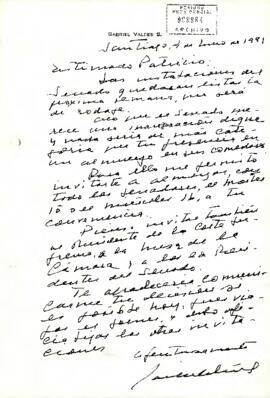 PERIODO
PRESIDENCIAL
ARCHIVO
GABRIEL VALDES S.
Santiago, de Enero de 1991
Estimado Patricio:
Las instalaciones del
Senado quedarán listas la
próxima semana,
de rodaje.
Creo que el Senado me-
rece una inauguración digna
y nada sería de más cate-
goría que tu presencia en
un almuerzo en sus comedores
Para ello me permito
invitarte a almorzar, con
todos los Senadores, el martes
15 o el miércoles 16, a tu
conveniencia.
Pienso invitar también
al Presidente de la Corte Su-
prema, a la mesa de la
Cámara y a los ex Presi-
dentes del Senado.
Te agradeceré comuni-
carme tu decisión si
es posible hoy, pues
las otras invita-
ciones
Afectuosamente